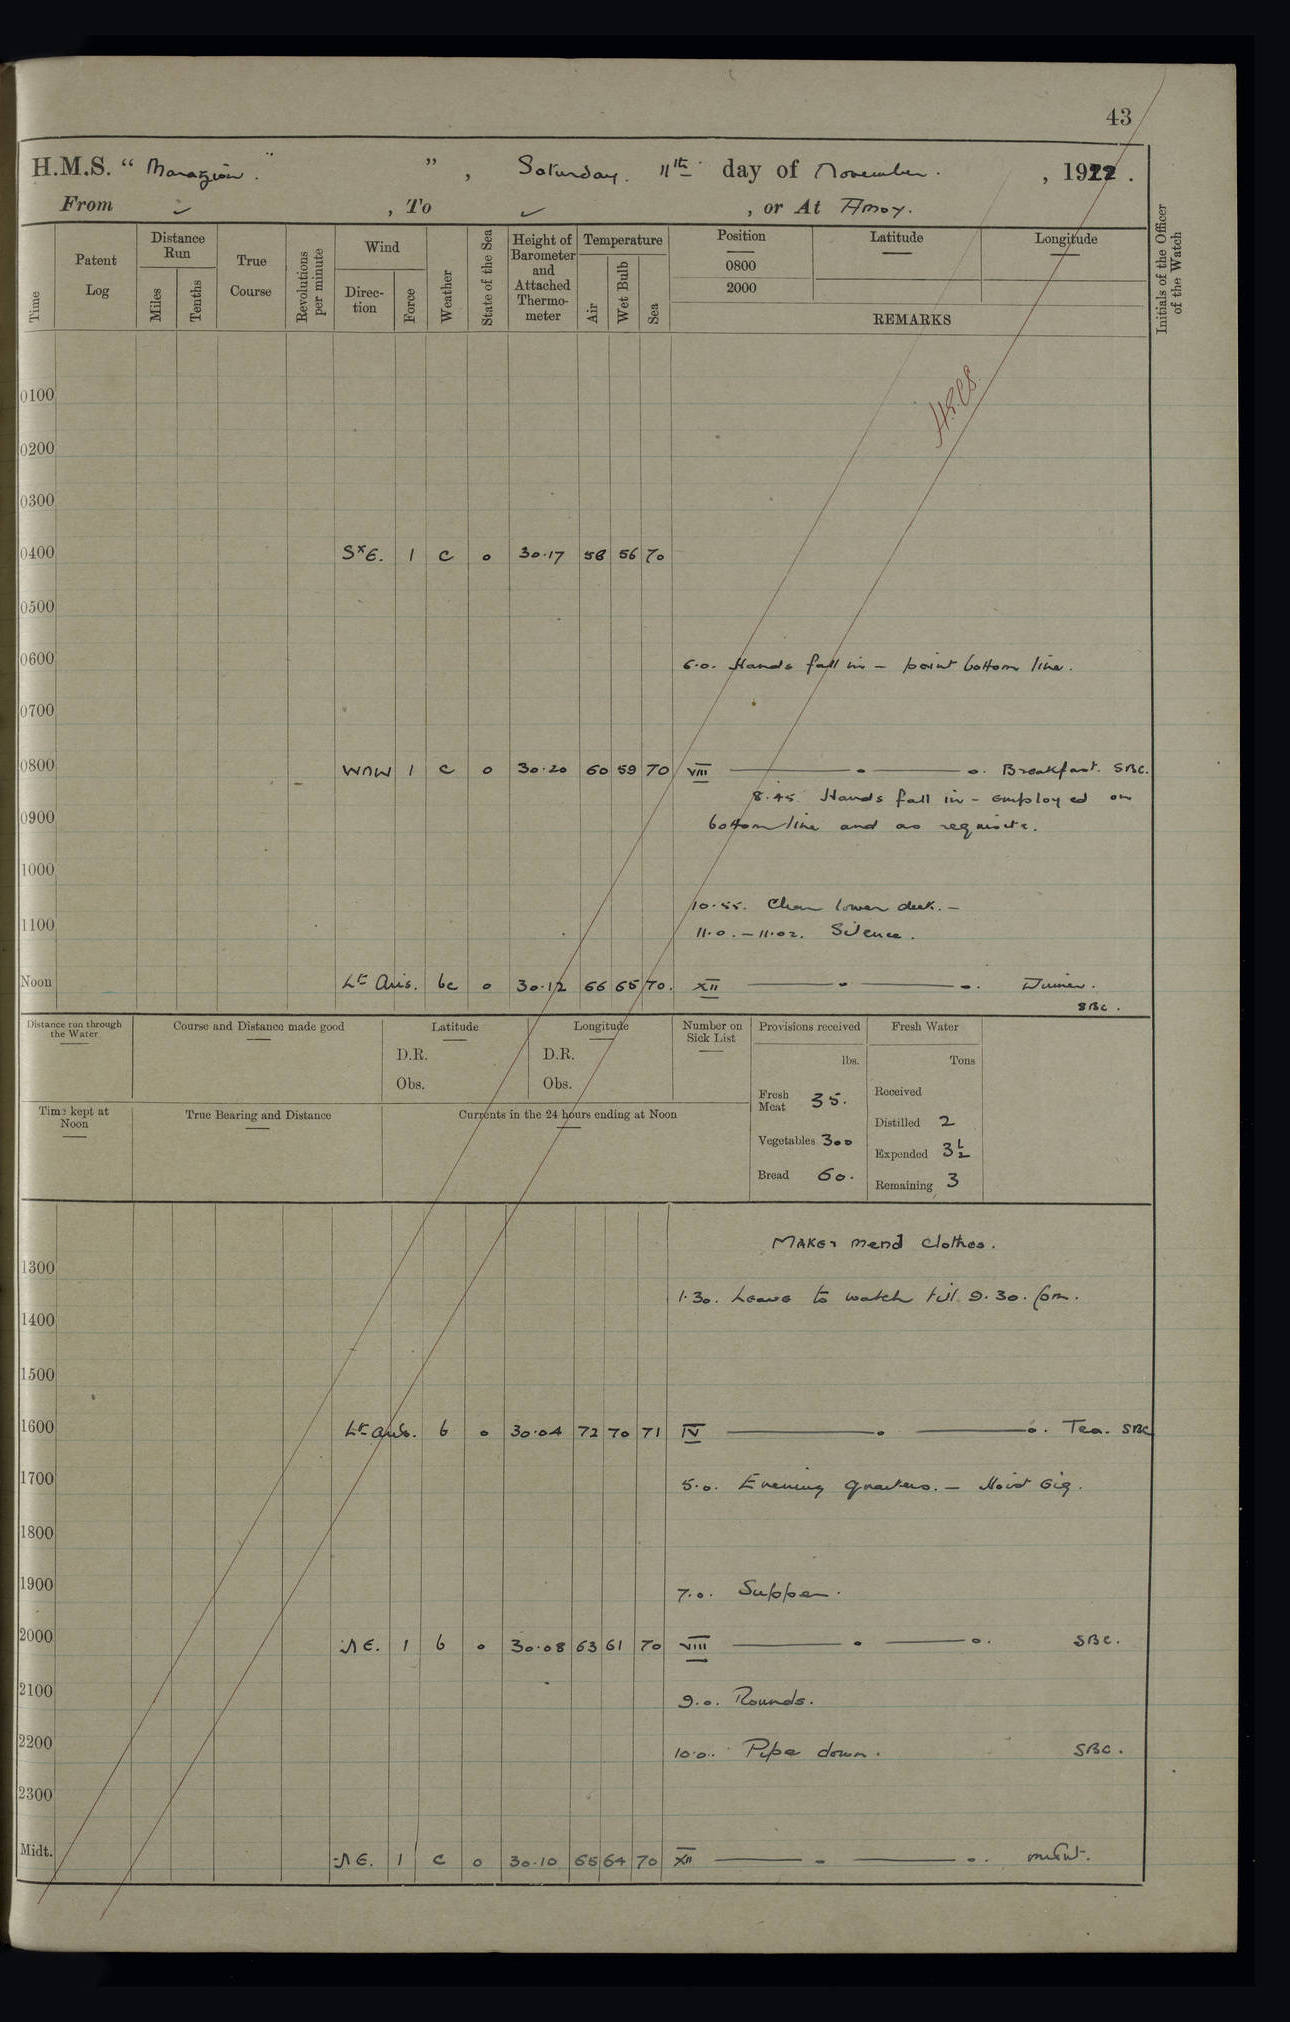 43
H.M.S. “ Marazion. ” , Saturday. 11th day of November. , 1922 .
From ✓ , To ✓ , or At Amoy.
Time
Patent Log
Distance Run
Miles
Tenths
True Course
Revolutions per minute
Wind
Direction
Force
Weather
State of the Sea
Height of Barometer and Attached Thermometer
Temperature
Air
Wet Bulb
Sea
Position
0800
2000
Latitude
Longitude
REMARKS
Initials of the Officer of the Watch
0100
0200
0300
0400 SxE. 1 c o 30.17 58 56 70
0500
0600 6.0. Hands fall in – point bottom line.
0700
0800 WNW 1 c o 30.20 60 59 70 VIII —— . —— o. Breakfast. SBC.
8.45 Hands fall in – employed on
0900 bottom line and as requisite.
1000
10.55. Clear lower deck. –
1100 11.0. – 11.02. Silence.
Noon Lt Airs. bc o 30.12 66 65 70. XII —— . —— o. Dinner.
SBC.
Distance run through the Water
Course and Distance made good
Latitude
D.R.
Obs.
Longitude
D.R.
Obs.
Number on Sick List
Provisions received
lbs.
Fresh Meat 35.
Vegetables 300
Bread 60.
Fresh Water
Tons
Received
Distilled 2
Expended 3½
Remaining 3
Time kept at Noon
True Bearing and Distance
Currents in the 24 hours ending at Noon
Make & mend clothes.
1300
1.30. Leave to watch till 9.30. pm.
1400
1500
1600 Lt airs. b o 30.04 72 70 71 IV —— . —— o. Tea. SBC
1700 5.0. Evening quarters. – Hoist Gig.
1800
1900 7.0. Supper.
2000 NE. 1 b o 30.08 63 61 70 VIII —— . —— o. SBC.
2100 9.0. Rounds.
2200 10.0. Pipe down. SBC.
2300
Midt. NE. 1 c o 30.10 65 64 70 XII —— . —— o.